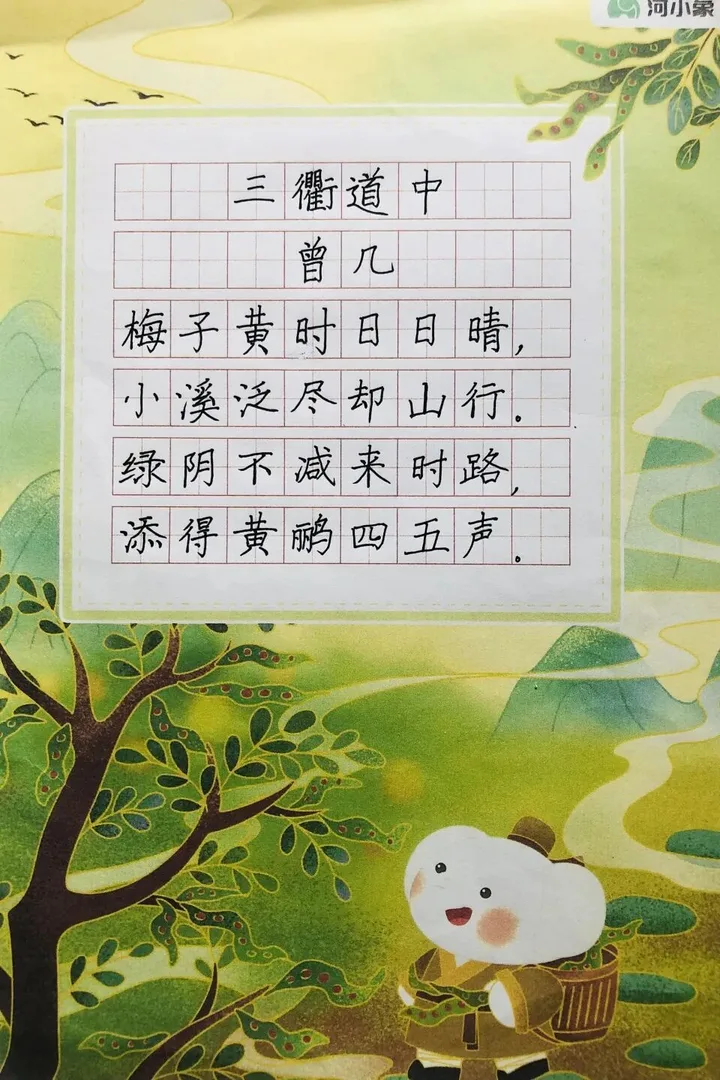 河小象
三衢道中
曾几
梅子黄时日日晴,
小溪泛尽却山行.
绿阴不减来时路,
添得黄鹂四五声.